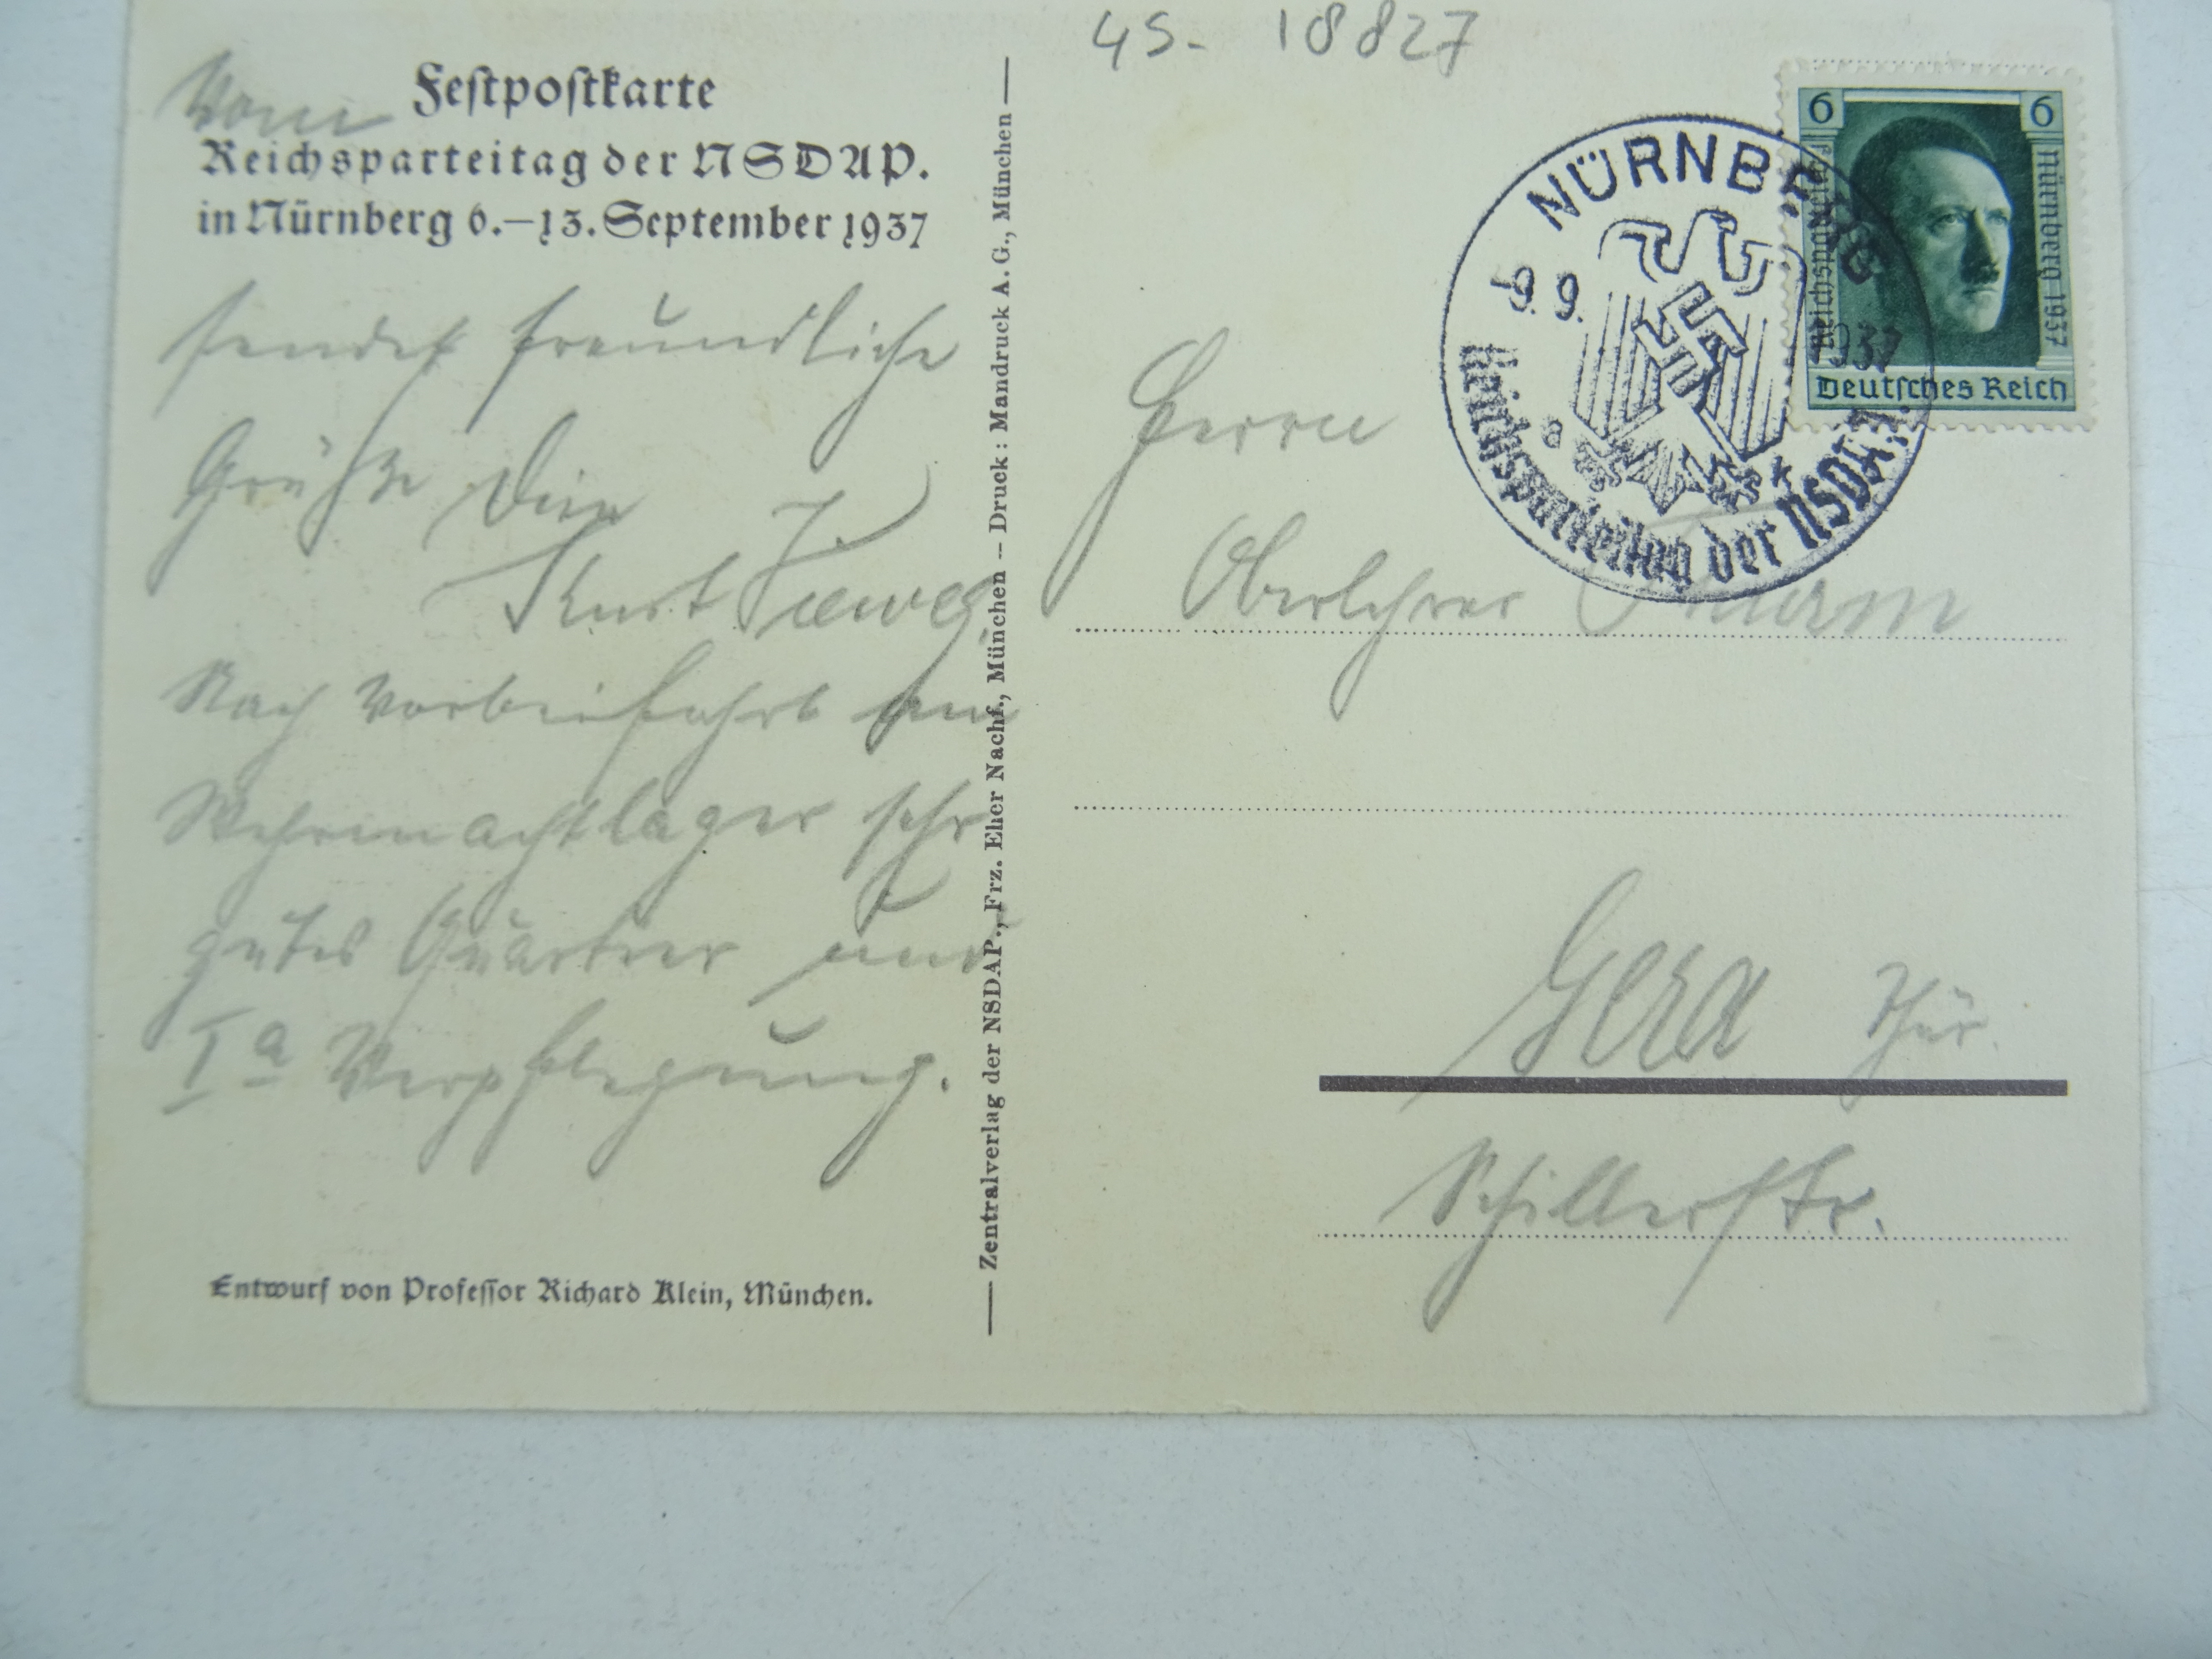 45- 18827
Vom Festpostkarte
Reichsparteitag der NSDAP.
in Nürnberg 6.–13. September 1937
sendet freundliche
Grüße Dein
Kurt
Nach Vorbeifahrt am
Wehrmachtlager sehr
gutes Quartier und
Ia Verpflegung.
Entwurf von Professor Richard Klein, München.
Zentralverlag der NSDAP., Frz. Eher Nachf., München – Druck: Mandruck A. G., München
NÜRNBERG
9.9. 1937
a
Reichsparteitag der NSDAP.
6 6
Reichsparteitag
Nürnberg 1937
Deutsches Reich
Herrn
Oberlehrer
Gera Thür.
Schillerstr.